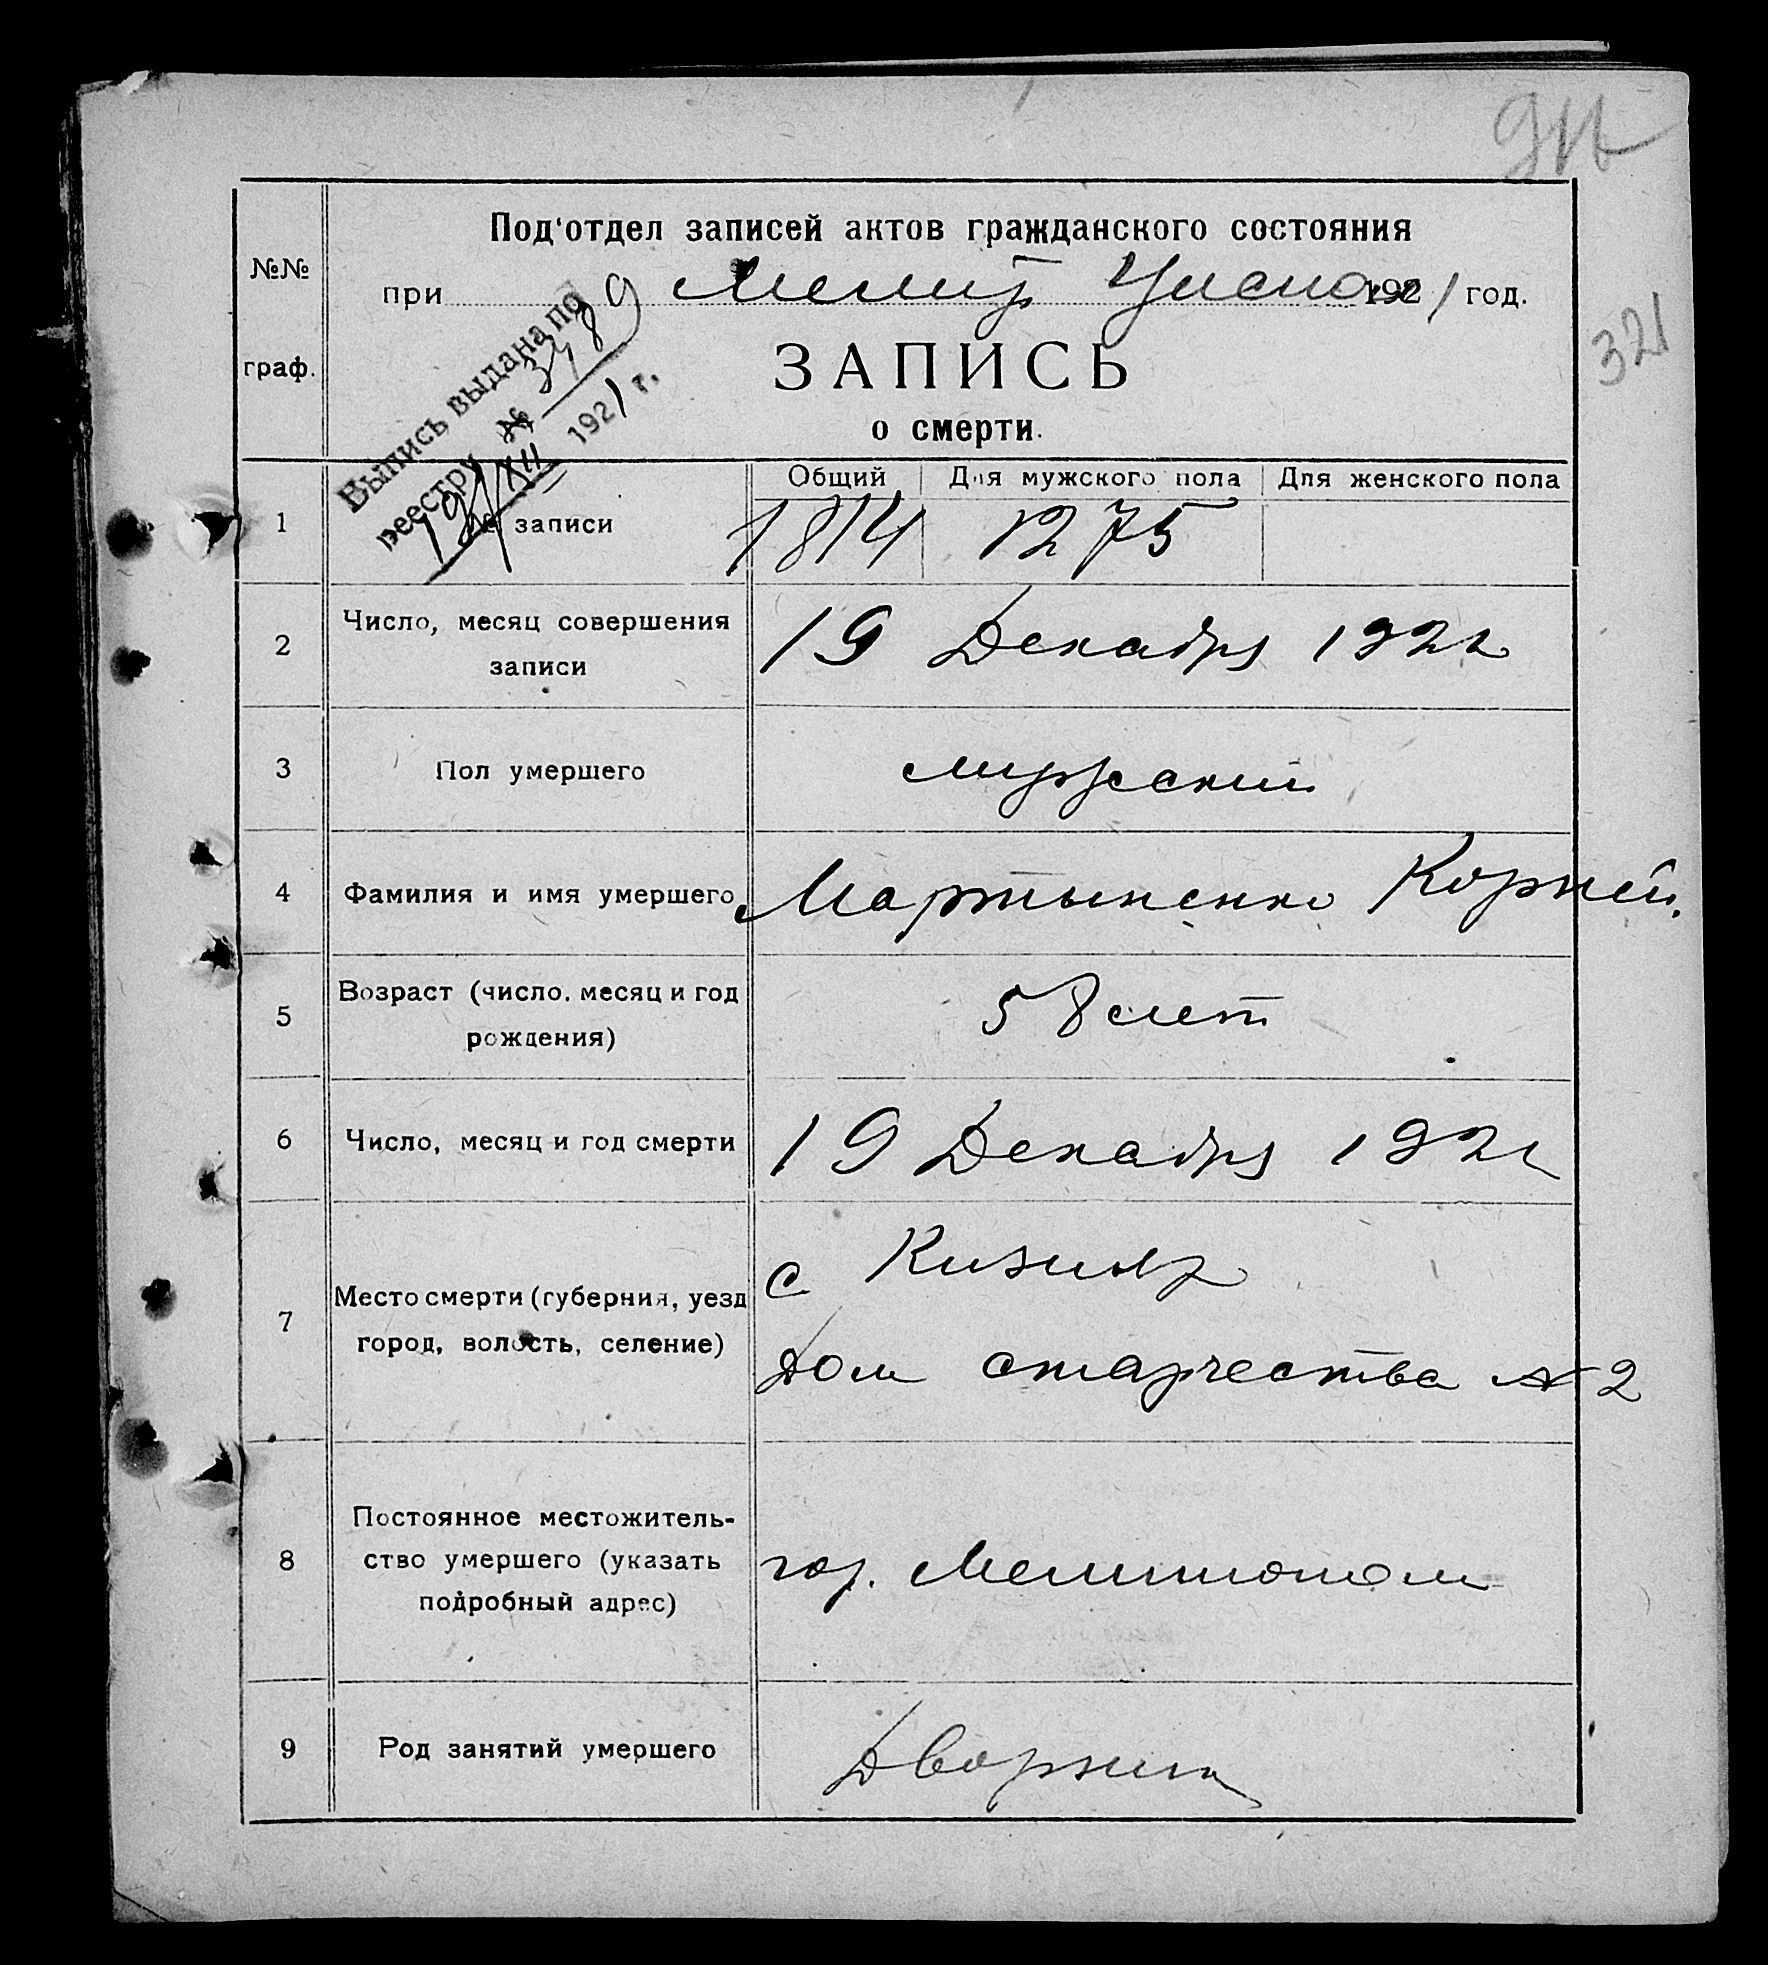 321
Под‘отдел записей актов гражданского состояния
№№
при Мелит Уисном 1921 год.
граф.
ЗАПИСЬ
о смерти.
Выпись выдана по
реестру № 3489
19/XII 1921 г.
Общий Для мужского пола Для женского пола
1 № записи 1814 1275
2 Число, месяц совершения записи 19 Декабря 1921
3 Пол умершего мужский
4 Фамилия и имя умершего Мартыненко Корней.
5 Возраст (число, месяц и год рождения) 58 лет
6 Число, месяц и год смерти 19 Декабря 1921
7 Место смерти (губерния, уезд город, волость, селение) с Кизияр
Дом старчества № 2
8 Постоянное местожитель-
ство умершего (указать
подробный адрес) гор. Мелитополь
9 Род занятий умершего Дворник